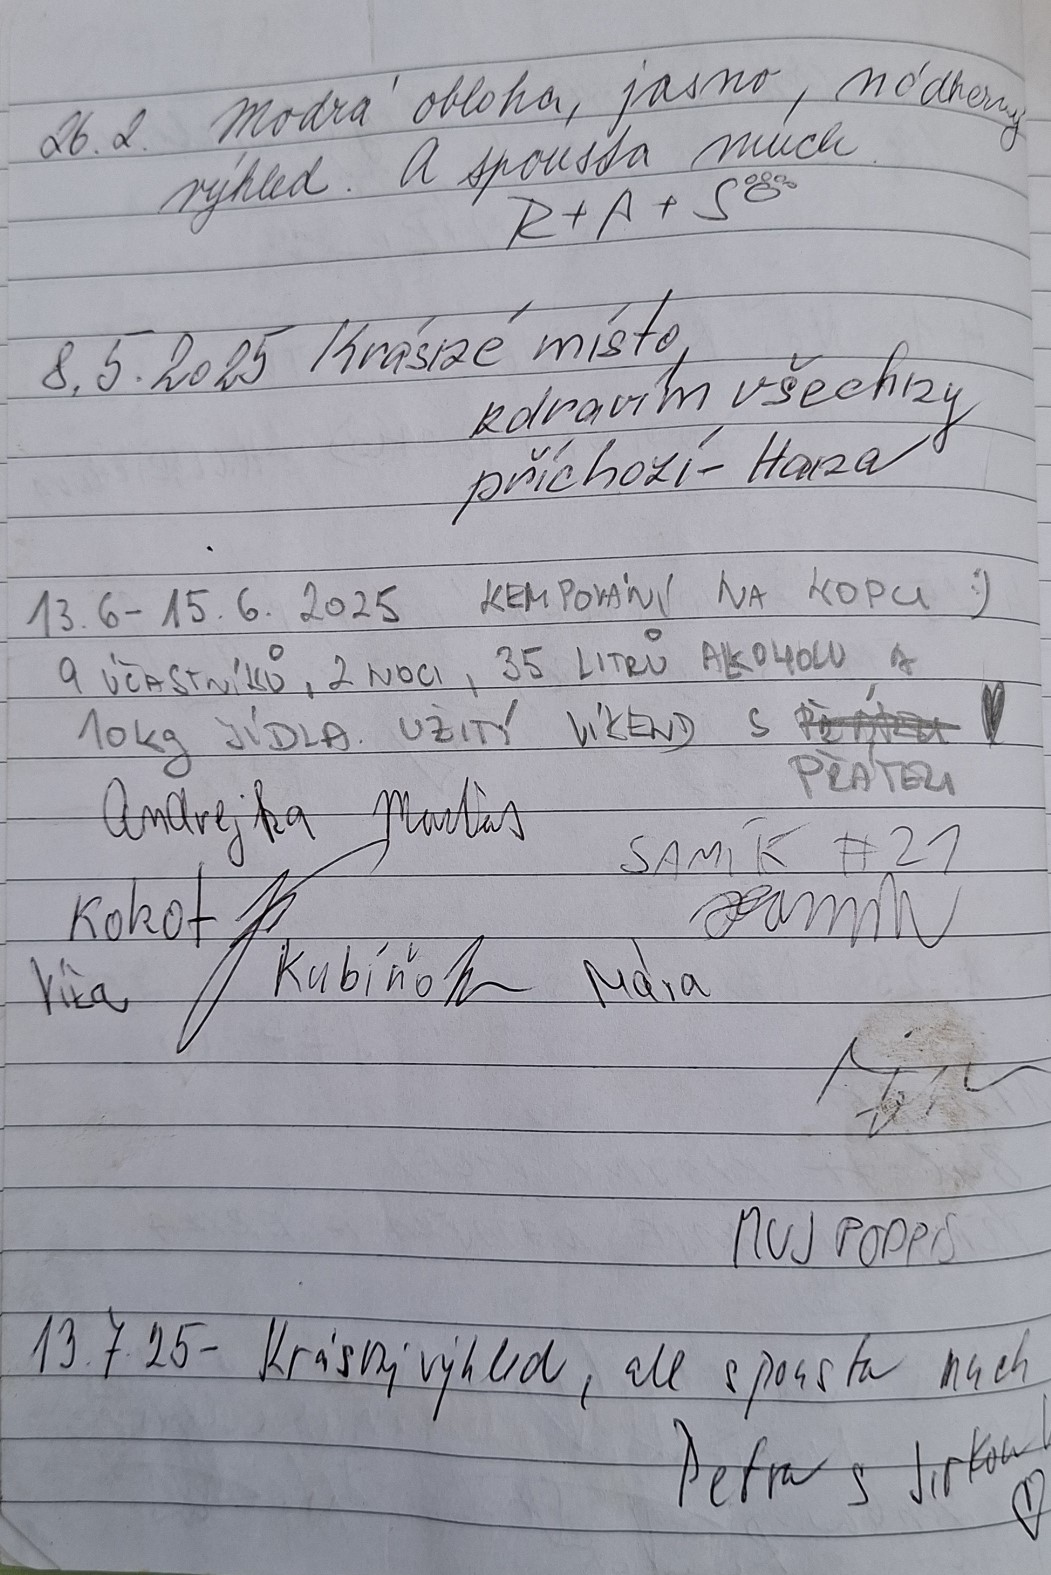 26.2. Modrá obloha, jasno, nádherný
výhled. A spousta much.
R+A+S
8.5.2025 Krásné místo,
zdravím všechny
příchozí - Hana
13.6-15.6. 2025 KEMPOVÁNÍ NA KOPCU :)
9 ÚČASTNÍKŮ, 2 NOCI, 35 LITRŮ ALKOHOLU A
10kg JÍDLA. UŽITÝ VÍKEND S
PŘÁTELI
Andrejka Matias
SAMÍK #21
Kokot
Samík
Víťa Kubíňo Mára
MUJ PODPIS
13.7.25- Krásný výhled, ale spousta much
Petra s Jirkou